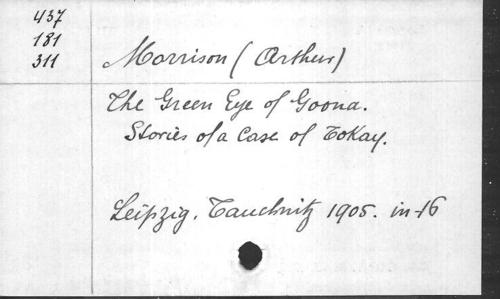 437
181
311
Morrison (Arthur)
The Green Eye of Goona.
Stories of a Case of Tokay.
Leipzig. Tauchnitz 1905. in-16